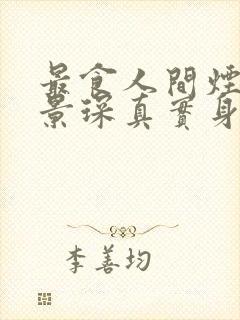 最食人間煙
景琛真實身
李善均